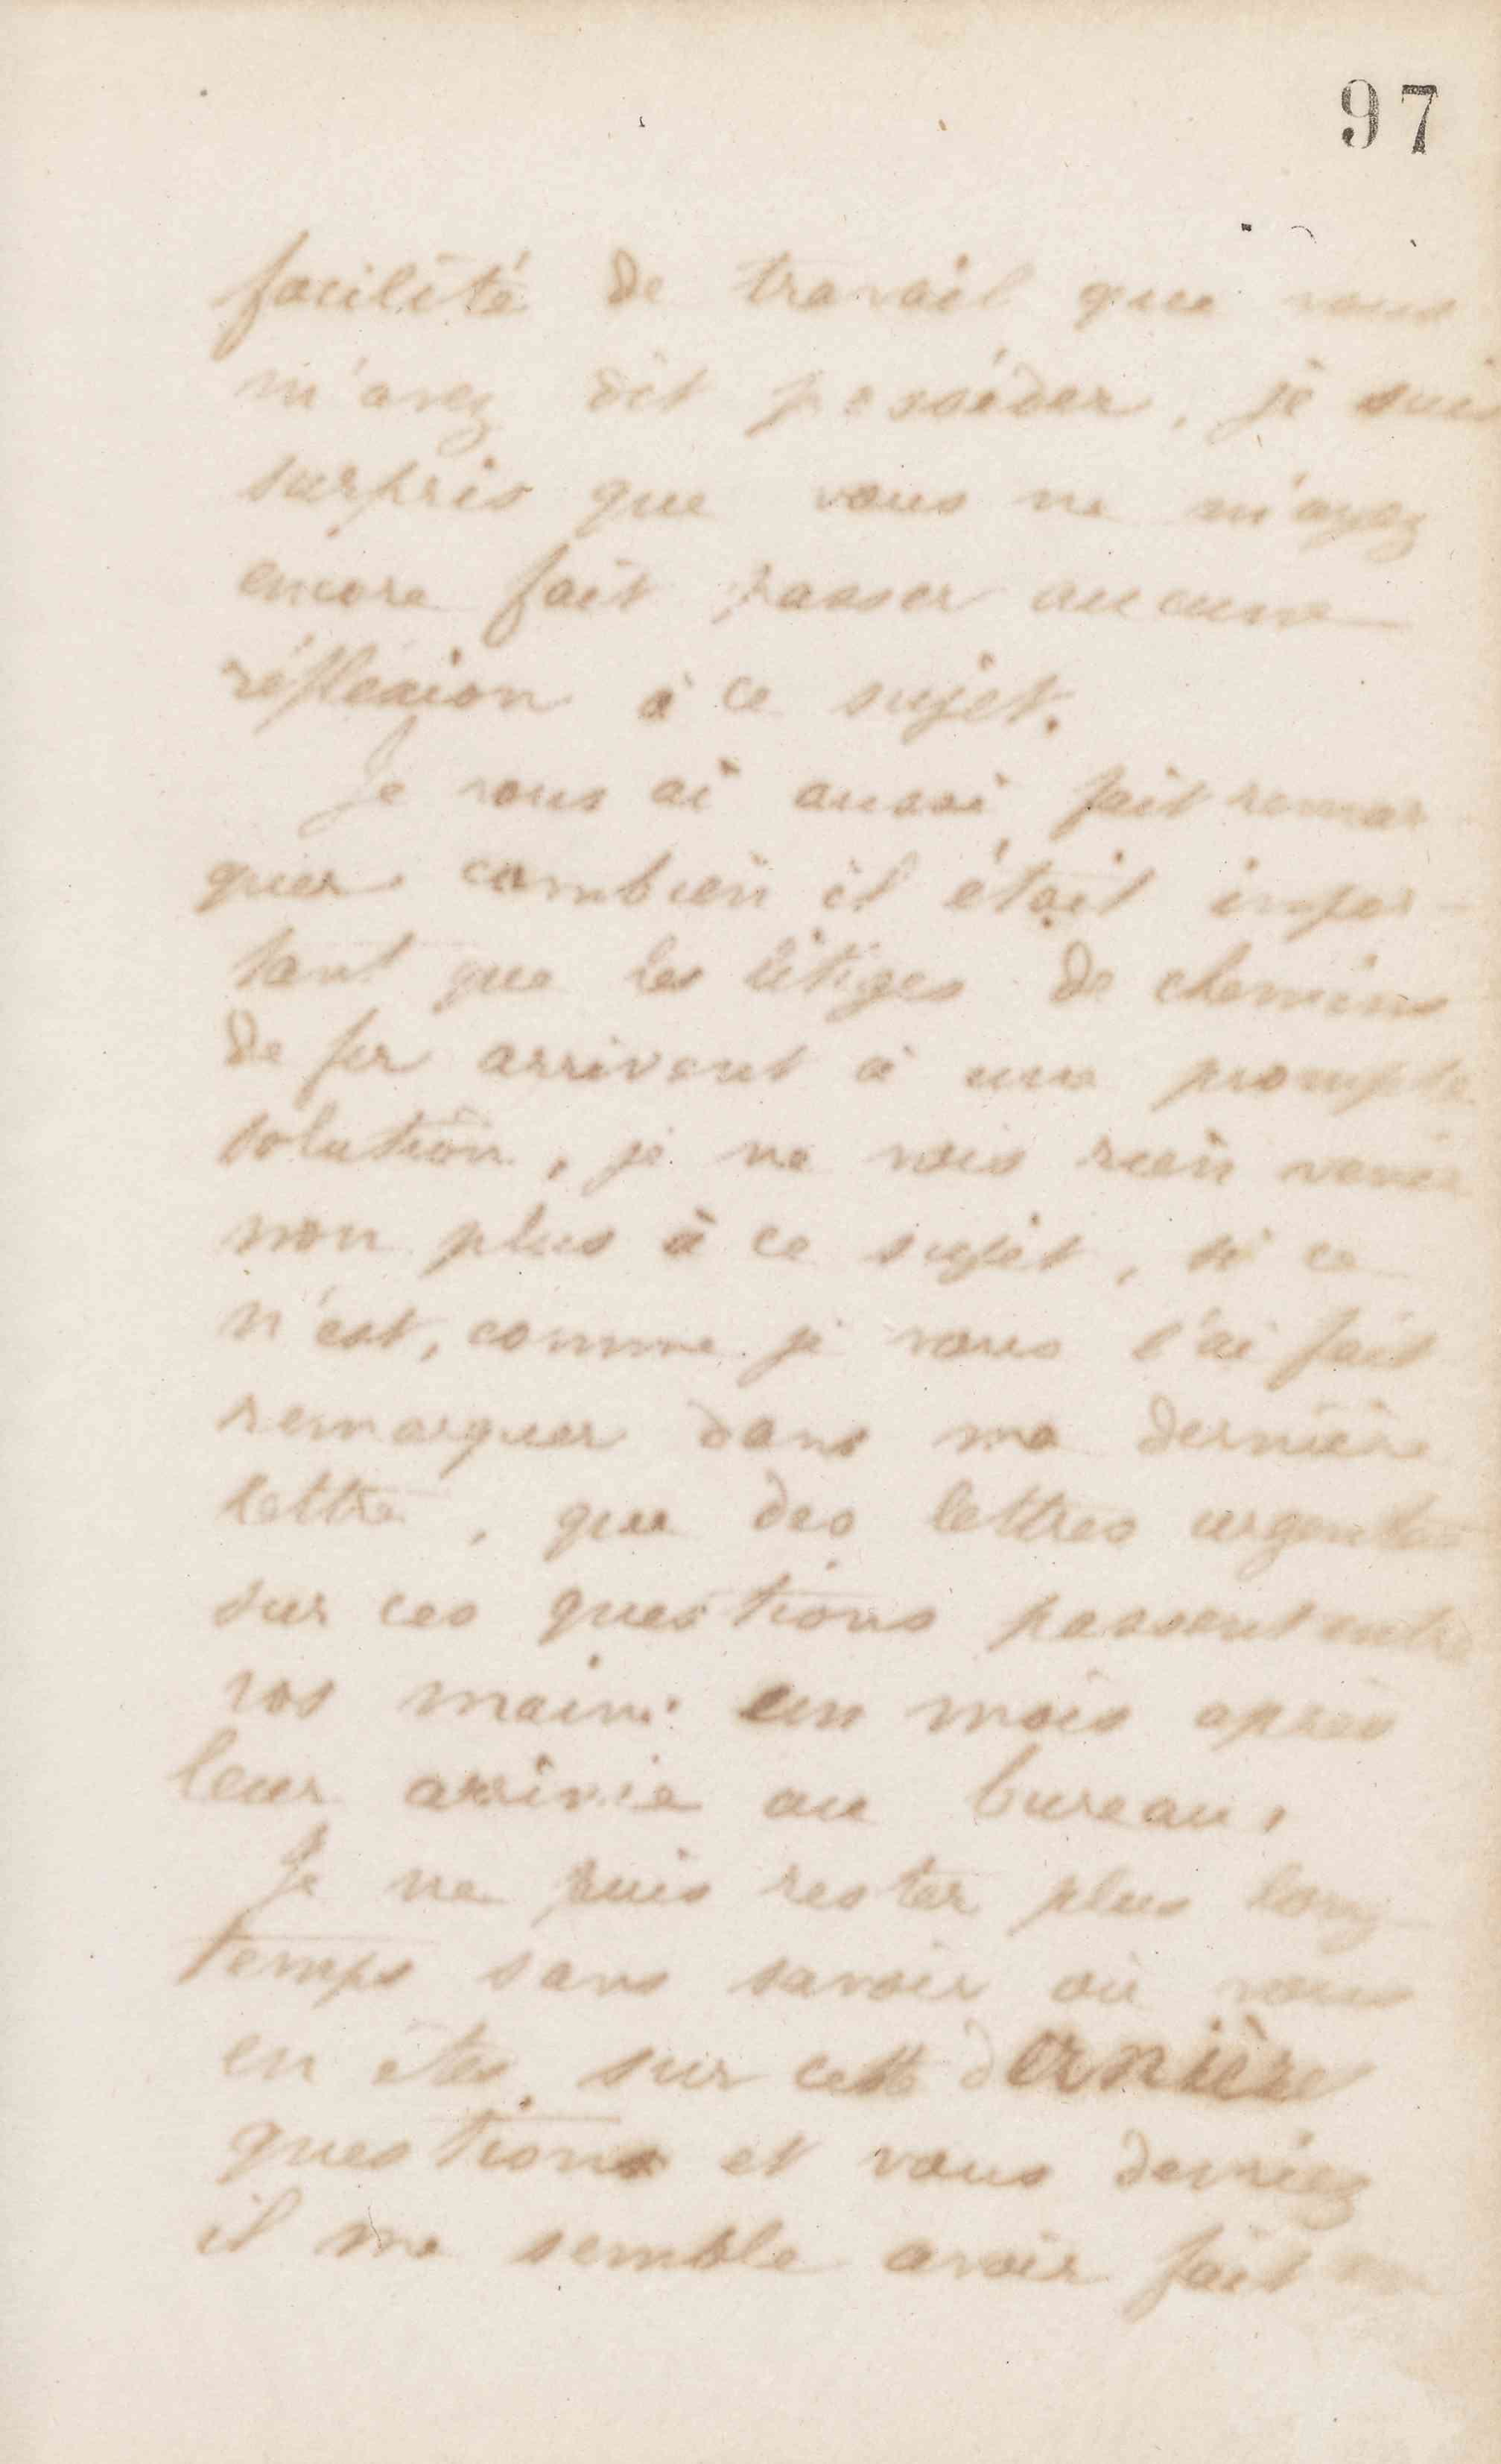 97
facilité de travail que vous
m'avez dit posséder, je suis
surpris que vous ne m'ayez
encore fait passer aucune
réflexion à ce sujet.
Je vous ai aussi fait remar
quer combien il était impor-
tant que les litiges de chemins
de fer arrivent à une prompte
solution, je ne vois rien venir
non plus à ce sujet, si ce
n'est, comme je vous l'ai fait
remarquer dans ma dernière
lettre, que des lettres urgentes
sur ces questions passent entre
vos mains un mois après
leur arrivée au bureau.
Je ne puis rester plus long-
temps sans savoir où vous
en êtes sur cette dernière
question et vous devriez
il me semble avoir fait